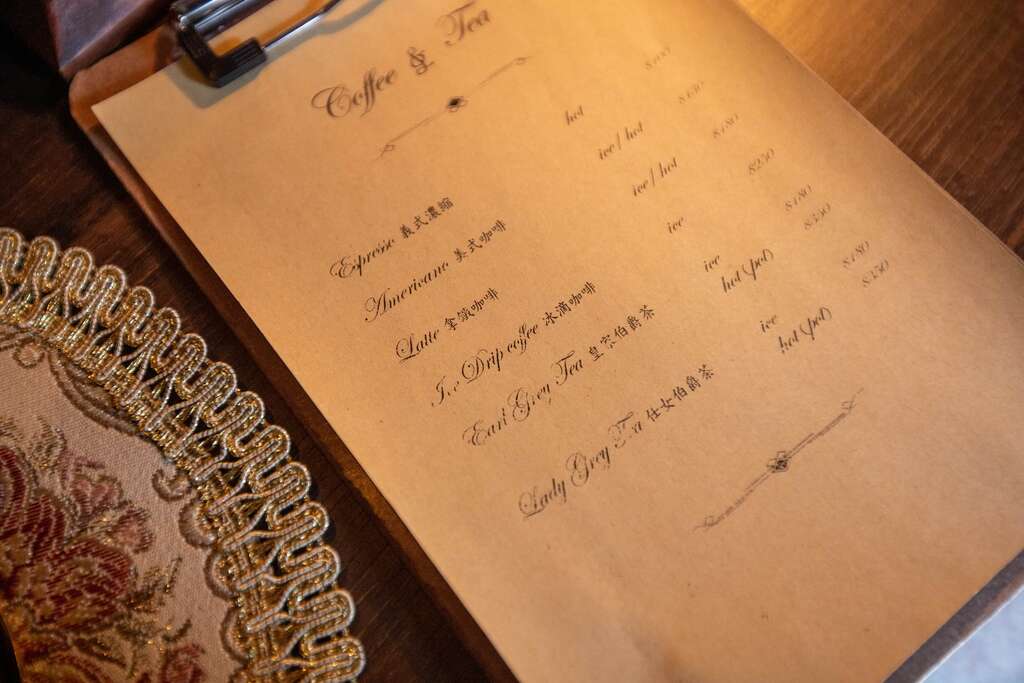 Coffee & Tea
Espresso 義式濃縮 hot
Americano 美式咖啡 ice/hot
Latte 拿鐵咖啡 ice/hot $180
Ice Drip coffee 冰滴咖啡 ice $250
Earl Grey Tea 皇家伯爵茶 ice $180
hot (pot) $350
Lady Grey Tea 仕女伯爵茶 ice $180
hot (pot) $350